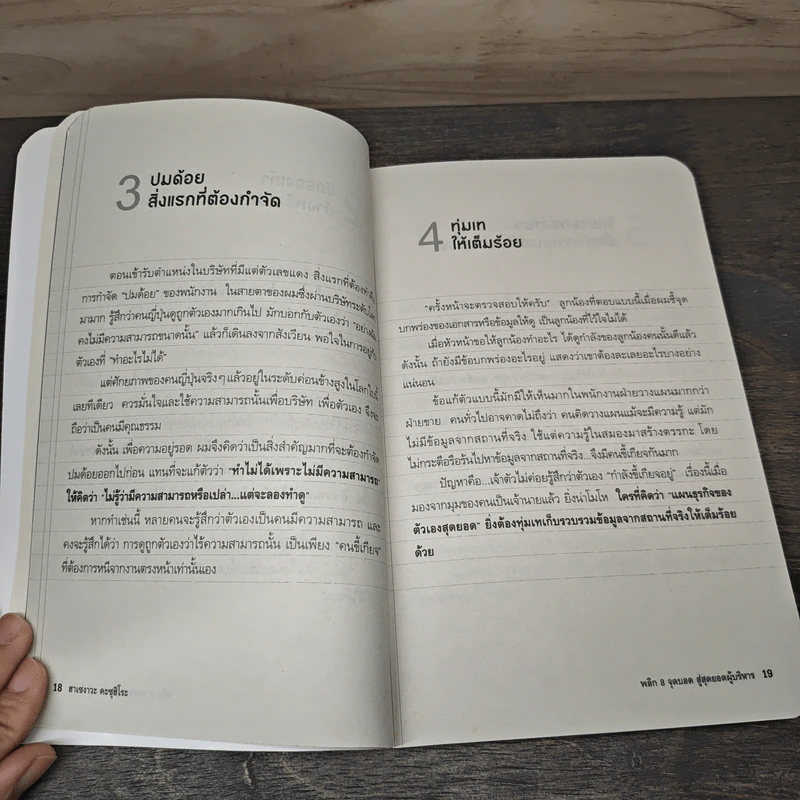 3 ปมด้อย
สิ่งแรกที่ต้องกำจัด
ตอนเข้ารับตำแหน่งในบริษัทที่มีแต่ตัวเลขแดง สิ่งแรกที่ต้องทำคือ
การกำจัด "ปมด้อย" ของพนักงาน ในสายตาของผมซึ่งผ่านบริษัทระดับโลก
มามาก รู้สึกว่าคนญี่ปุ่นดูถูกตัวเองมากเกินไป มักบอกกับตัวเองว่า "อย่างฉัน
คงไม่มีความสามารถขนาดนั้น" แล้วก็เดินลงจากสังเวียน พอใจในการอยู่กับ
ตัวเองที่ "ทำอะไรไม่ได้"
แต่ศักยภาพของคนญี่ปุ่นจริงๆ แล้วอยู่ในระดับค่อนข้างสูงในโลกใบนี้
เลยทีเดียว ควรมั่นใจและใช้ความสามารถนั้นเพื่อบริษัท เพื่อตัวเอง จึงจะ
ถือว่าเป็นคนมีคุณธรรม
ดังนั้น เพื่อความอยู่รอด ผมจึงคิดว่าเป็นสิ่งสำคัญมากที่จะต้องกำจัด
ปมด้อยออกไปก่อน แทนที่จะแก้ตัวว่า "ทำไม่ได้เพราะไม่มีความสามารถ"
ให้คิดว่า "ไม่รู้ว่ามีความสามารถหรือเปล่า...แต่จะลองทำดู"
หากทำเช่นนี้ หลายคนจะรู้สึกว่าตัวเองเป็นคนมีความสามารถ และ
คงจะรู้สึกได้ว่า การดูถูกตัวเองว่าไร้ความสามารถนั้น เป็นเพียง "คนขี้เกียจ"
ที่ต้องการหนีจากงานตรงหน้าเท่านั้นเอง
18 ฮาเซงาวะ คะซุฮิโระ
4 ทุ่มเท
ให้เต็มร้อย
"ครั้งหน้าจะตรวจสอบให้ครับ" ลูกน้องที่ตอบแบบนี้เมื่อผมชี้จุด
บกพร่องของเอกสารหรือข้อมูลให้ดู เป็นลูกน้องที่ไว้ใจไม่ได้
เมื่อหัวหน้าขอให้ลูกน้องทำอะไร ได้ดูกำลังของลูกน้องคนนั้นดีแล้ว
ดังนั้น ถ้ายังมีข้อบกพร่องอะไรอยู่ แสดงว่าเขาต้องละเลยอะไรบางอย่าง
แน่นอน
ข้อแก้ตัวแบบนี้มักมีให้เห็นมากในพนักงานฝ่ายวางแผนมากกว่า
ฝ่ายขาย คนทั่วไปอาจคาดไม่ถึงว่า คนคิดวางแผนแม้จะมีความรู้ แต่มัก
ไม่มีข้อมูลจากสถานที่จริง ใช้แต่ความรู้ในสมองมาสร้างตรรกะ โดย
ไม่กระตือรือร้นไปหาข้อมูลจากสถานที่จริง...จึงมีคนขี้เกียจกันมาก
ปัญหาคือ...เจ้าตัวไม่ค่อยรู้สึกว่าตัวเอง "กำลังขี้เกียจอยู่" เรื่องนี้เมื่อ
มองจากมุมของคนเป็นเจ้านายแล้ว ยิ่งน่าโมโห ใครที่คิดว่า "แผนธุรกิจของ
ตัวเองสุดยอด" ยิ่งต้องทุ่มเทเก็บรวบรวมข้อมูลจากสถานที่จริงให้เต็มร้อย
ด้วย
พลิก 8 จุดบอด สู่สุดยอดผู้บริหาร 19